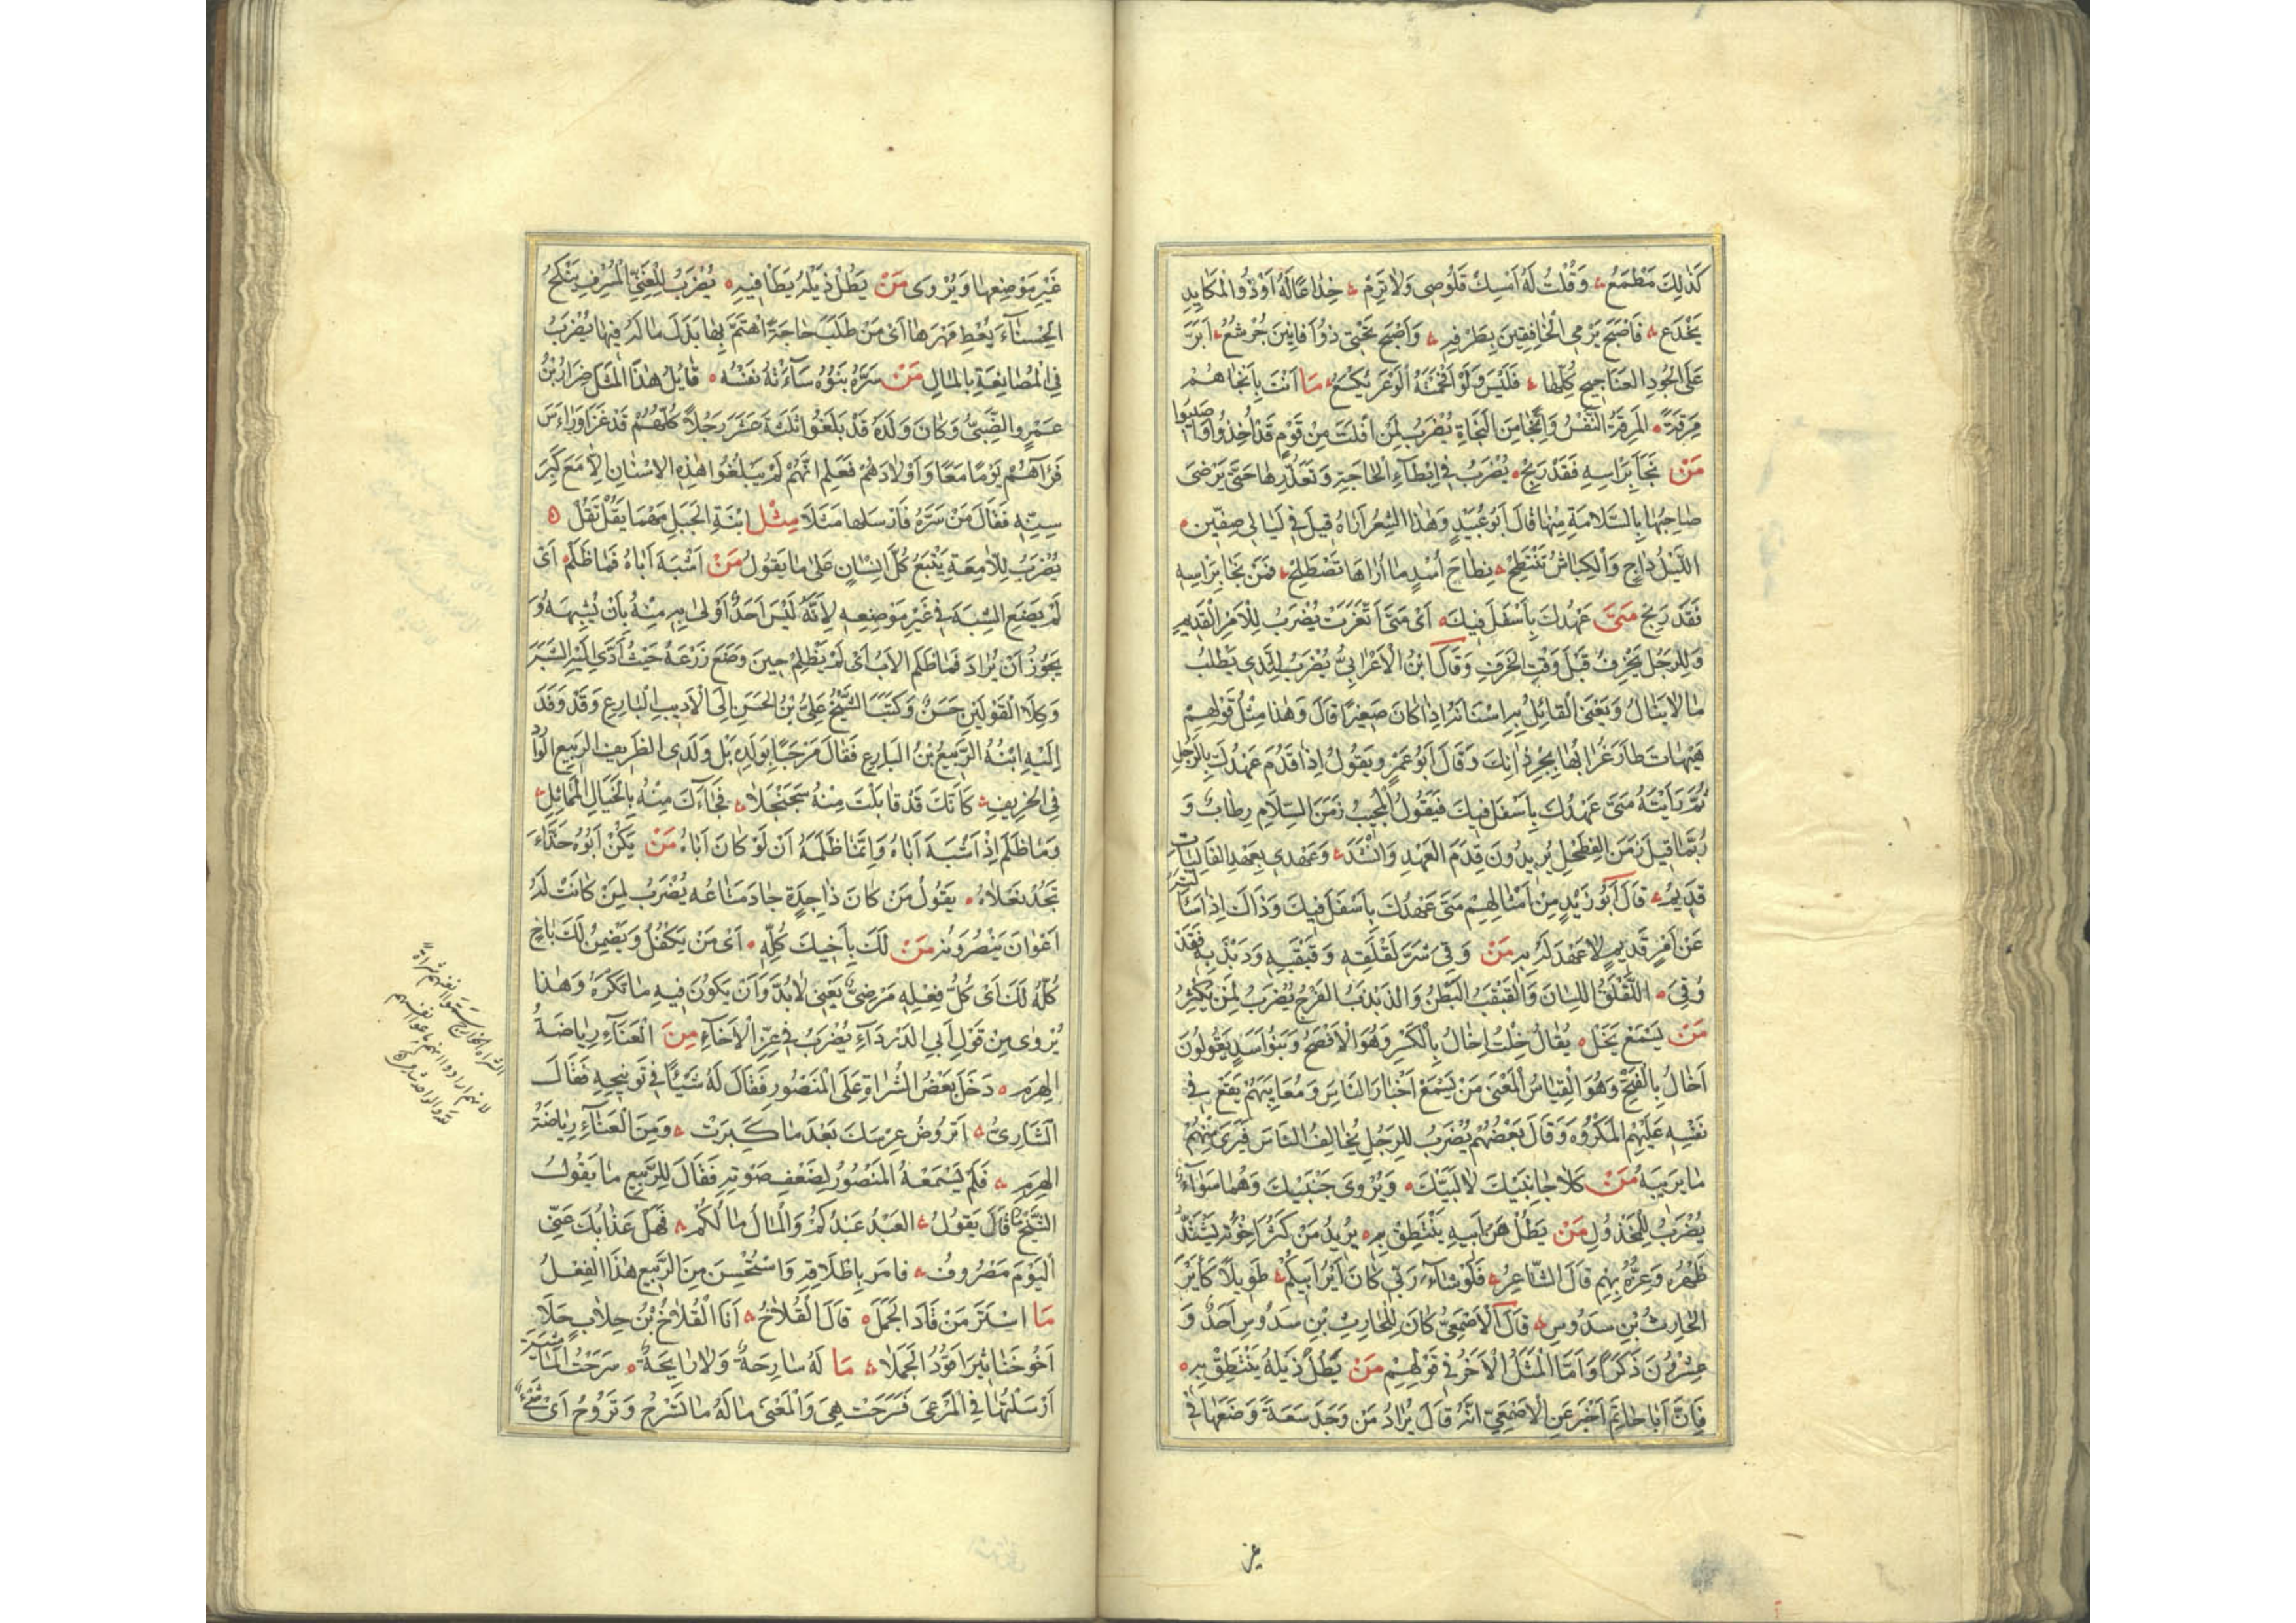 كَذٰلِكَ مَطْمَعُ وَقُلْتُ لَهُ اَمْسِكْ قَلُوصِى وَلاٰ تَرِمْ خِدٰاعًا لَهُ اَوْ ذُو الْمَكٰايِدِ
يَخْدَع فَاَصْبَحَ يَرْمِى الْخٰافِقِينَ بِطَرْفِهِ وَاَصْبَحَ تَحْتِى ذُو اَفٰانِينَ جُرْشُعُ اَبَرَّ
عَلَى الْجُودِ العَنٰاجِيجِ كُلِّهٰا فَلَيْسَ وَلَوْ اَقْحَمْتَهُ الْوَعْرَ يَكْسَعُ مٰا اَنْتَ بِاَنْجٰاهُمْ
مَرِقَةً المَرِقَةُ النَّفْسُ وَاَنْجٰا مِنَ النَّجٰاةِ يُضْرَبُ لِمَنْ اَفْلَتَ مِنْ قَوْمٍ قَدْ اُخِذُوا وَاُصِيبُوا
مَنْ نَجٰا بِرَاسِهِ فَقَدْ رَبِحَ يُضْرَبُ فِى اِبْطٰاءِ الْحٰاجَةِ وَتَعَذُّرِهٰا حَتّٰى يَرْضَى
صٰاحِبُهٰا بِالسَّلاٰمَةِ مِنْهٰا قٰالَ اَبُو عُبَيْدٍ وَهٰذَا الشِّعْرُ اَرٰاهُ قِيلَ فِى لَيٰالِى صِفِّينَ
اللَّيْلُ دٰاجٍ وَالْكِبٰاشُ تَنْتَطِحُ نِطٰاحَ اُسْدٍ مٰا اَرٰاهَا تَصْطَلِحُ فَمَنْ نَجٰا بِرَاسِهِ
فَقَدْ رَبِحَ مَتٰى عَهْدُكَ بِاَسْفَلِ فِيكَ اَىْ مَتٰى اَثْغَرْتَ يُضْرَبُ لِلْاَمْرِ الْقَدِيمِ
وَلِلرَّجُلِ يَخْرِفُ قَبْلَ وَقْتِ الْخَرَفِ وَقٰالَ ابْنُ الْاَعْرٰابِىِّ يُضْرَبُ لِلَّذِى يَطْلُبُ
مٰا لاٰ يَنٰالُ وَيَعْنِى الْقٰائِلُ بِهِ اَسْنٰانَهُ اِذٰا كٰانَ صَغِيرًا قٰالَ وَهٰذٰا مِثْلُ قَوْلِهِمْ
هَيْهٰاتَ طٰارَ غُرٰابُهٰا بِجُرْذٰانِكَ وَقٰالَ اَبُو عَمْرٍو يَقُولُ اِذٰا قَدُمَ عَهْدُكَ بِالرَّجُلِ
ثُمَّ رَاَيْتَهُ مَتٰى عَهْدُكَ بِاَسْفَلِ فِيكَ فَيَقُولُ الْمُجِيبُ زَمَنَ السِّلاٰمِ رِطٰابٌ وَ
رُبَّمٰا قِيلَ زَمَنَ الفِطَحْلِ يُرِيدُونَ قِدَمَ الْعَهْدِ وَانْشَدَ وَعَهْدِى بِعَهْدِ الفٰالِيٰاتِ
قَدِيمُ قٰالَ اَبُو زَيْدٍ مِنْ اَمْثٰالِهِمْ مَتٰى عَهْدُكَ بِاَسْفَلِ فِيكَ وَذٰاكَ اِذٰا سَاَلْتَهُ
عَنْ اَمْرٍ قَدِيمٍ لاٰ عَهْدَ لَهُ بِهِ مَنْ وُقِىَ شَرَّ لَقْلَقِهِ وَقَبْقَبِهِ وَذَبْذَبِهِ فَقَدْ
وُقِىَ اللَّقْلَقُ اللِّسٰانُ وَالْقَبْقَبُ الْبَطْنُ وَالذَّبْذَبُ الفَرْجُ يُضْرَبُ لِمَنْ يُكْثِرُ
مَنْ يَسْمَعْ يَخَلْ يُقٰالُ خِلْتُ اِخٰالُ بِالْكَسْرِ وَهُوَ الْاَفْصَحُ وَبَنُو اَسَدٍ يَقُولُونَ
اَخٰالُ بِالْفَتْحِ وَهُوَ الْقِيٰاسُ الْمَعْنَى مَنْ يَسْمَعْ اَخْبٰارَ النّٰاسِ وَمَعٰايِبَهُمْ يَقَعْ فِى
نَفْسِهِ عَلَيْهِمُ الْمَكْرُوهُ وَقٰالَ بَعْضُهُمْ يُضْرَبُ لِلرَّجُلِ يُخٰالِفُ النّٰاسَ فَيَرَى مِنْهُمْ
مٰا يَرِيبُهُ مَنْ كِلاٰ جٰانِبَيْكَ لاٰ لَبَّيْكَ وَيُرْوَى جَنْبَيْكَ وَهُمٰا سَوٰاءٌ
يُضْرَبُ لِلْمَخْذُولِ مَنْ يَطُلْ هَنُ اَبِيهِ يَنْتَطِقْ بِهِ يُرِيدُ مَنْ كَثُرَ اِخْوَتُهُ يَشْتَدُّ
ظَهْرُهُ وَعِزُّهُ بِهِمْ قٰالَ الشّٰاعِرُ فَلَوْ شٰاءَ رَبِّى كٰانَ اَيْرُ اَبِيكُمْ طَوِيلاً كَاَيْرِ
الْحٰارِثِ بْنِ سَدُوسِ قٰالَ الْاَصْمَعِىُّ كٰانَ لِلْحٰارِثِ بْنِ سَدُوسٍ اَحَدٌ وَ
عِشْرُونَ ذَكَرًا وَاَمَّا الْمَثَلُ الْاٰخَرُ فِى قَوْلِهِمْ مَنْ يَطُلْ ذَيْلُهُ يَنْتَطِقْ بِهِ
فَاِنَّ اَبٰا حٰاتِمٍ اَخْبَرَ عَنِ الْاَصْمَعِىِّ انَّهُ قٰالَ يُرٰادُ مَنْ وَجَدَ سَعَةً وَضَعَهٰا فِى
غَيْرِ مَوْضِعِهٰا وَيُرْوَى مَنْ يَطُلْ ذَيْلُهُ يَطَأْ فِيهِ يُضْرَبُ لِلْغَنِىِّ الْمُسْرِفِ يَنْكَحُ
الْحَسْنٰاءَ يُعْطِ مَهْرَهٰا اَىْ مَنْ طَلَبَ حٰاجَةً اهْتَمَّ بِهٰا بَذَلَ مٰالَهُ فِيهٰا يُضْرَبُ
فِى الْمُصٰانَعَةِ بِالْمٰالِ مَنْ سَرَّهُ بَنُوهُ سٰاءَتْهُ نَفْسُهُ قٰائِلُ هٰذَا الْمَثَلِ ضِرٰارُ بْنُ
عَمْرٍو الضَّبِّىُّ وَكٰانَ وَلَدُهُ قَدْ بَلَغُوا ثَلٰثَةَ عَشَرَ رَجُلاً كُلُّهُمْ قَدْ غَزٰا وَرَأَسَ
فَرَآهُمْ يَوْمًا مَعًا وَاَوْلاٰدَهُمْ فَعَلِمَ انَّهُمْ لَمْ يَبْلُغُوا هٰذِهِ الاسْنٰانَ اِلاّٰ مَعَ كِبَرِ
سِنِّهِ فَقٰالَ مَنْ سَرَّهُ فَاَرْسَلَهٰا مَثَلاً مِثْلُ ابْنَةِ الْجَبَلِ مَهْمٰا يُقَلْ تَقُلْ
يُضْرَبُ لِلْاِمَّعَةِ يَتْبَعُ كُلَّ اِنْسٰانٍ عَلٰى مٰا يَقُولُ مَنْ اَشْبَهَ اَبٰاهُ فَمٰا ظَلَمَ اَىْ
لَمْ يَضَعِ الشَّبَهَ فِى غَيْرِ مَوْضِعِهِ لِاَنَّهُ لَيْسَ اَحَدٌ اَوْلَى بِهِ مِنْهُ بِاَنْ يُشْبِهَهُ وَ
يَجُوزُ اَنْ يُرٰادَ فَمٰا ظَلَمَ الْاَبُ اَىْ لَمْ يَظْلِمْ حِينَ وَضَعَ زَرْعَهُ حَيْثُ اَدَّى اِلَيْهِ الشَّبَهَ
وَكِلاَ الْقَوْلَيْنِ حَسَنٌ وَكَتَبَ الشَّيْخُ عَلِىُّ بْنُ الْحَسَنِ اِلَى الْاَدِيبِ الْبٰارِعِ وَقَدْ وَفَدَ
اِلَيْهِ ابْنُهُ الرَّبِيعُ بْنُ الْبٰارِعِ فَقٰالَ مَرْحَبًا بِوَلَدِهِ بَلْ وَلَدِى الظَّرِيفِ الرَّبِيعِ الْوٰارِدِ
فِى الْخَرِيفِ كَاَنَّكَ قَدْ قٰابَلْتَ مِنْهُ سَجَنْجَلاٰ فَجٰاءَكَ مِنْهُ بِالْخَيٰالِ الْمُمٰاثِلِ
وَمٰا ظَلَمَ اِذْ اَشْبَهَ اَبٰاهُ وَاِنَّمٰا ظَلَمَهُ اَنْ لَوْ كٰانَ اَبٰاهُ مَنْ يَكُنْ اَبُوهُ حَذّٰاءَ
تَجُدْ نَعْلاٰهُ يَقُولُ مَنْ كٰانَ ذٰا جِدَةٍ جٰادَ مَتٰاعُهُ يُضْرَبُ لِمَنْ كٰانَتْ لَهُ
اَعْوٰانٌ يَنْصُرُونَهُ مَنْ لَكَ بِاَخِيكَ كُلِّهِ اَىْ مَنْ يَكْفُلُ وَيَضْمَنُ لَكَ بِاَخٍ
كُلُّهُ لَكَ اَىْ كُلُّ فِعْلِهِ مَرْضِىٌّ يَعْنِى لاٰ بُدَّ وَاَنْ يَكُونَ فِيهِ مٰا تَكْرَهُ وَهٰذٰا
يُرْوٰى مِنْ قَوْلِ اَبِى الدَّرْدٰاءِ يُضْرَبُ فِى عِزِّ الْاِخٰاءِ مِنَ الْعَنٰاءِ رِيٰاضَةُ
الهَرِمِ دَخَلَ بَعْضُ الشُّرٰاةِ عَلَى الْمَنْصُورِ فَقٰالَ لَهُ شَيْئًا فِى تَوْبِيخِهِ فَقٰالَ
الشّٰارِىُّ اَتَرُوضُ عِرْسَكَ بَعْدَ مٰا كَبِرَتْ وَمِنَ الْعَنٰاءِ رِيٰاضَةُ
الهَرِمِ فَلَمْ يَسْمَعْهُ المَنْصُورُ لِضَعْفِ صَوْتِهِ فَقٰالَ لِلرَّبِيعِ مٰا يَقُولُ
الشَّيْخُ قٰالَ يَقُولُ العَبْدُ عَبْدُكُمُ وَالْمٰالُ مٰالُكُمُ فَهَلْ عَذٰابُكَ عَنِّى
الْيَوْمَ مَصْرُوفُ فَاَمَرَ بِاِطْلاٰقِهِ وَاسْتُحْسِنَ مِنَ الرَّبِيعِ هٰذَا الفِعْلُ
مَا اسْتَتَرَ مَنْ قٰادَ الْجَمَلَ قٰالَ الْقُلاٰخُ اَنَا الْقُلاٰخُ بْنُ جَلاٰبٍ جَلاٰ
اَخُو خَنٰاثِيرَ اَقُودُ الْجَمَلاٰ مٰا لَهُ سٰارِحَةٌ وَلاٰ رٰايِحَةٌ سَرَحْتُ الْمٰاشِيَةَ
اَرْسَلْتُهٰا فِى الْمَرْعٰى فَسَرَحَتْ هِىَ وَالْمَعْنَى مٰا لَهُ مٰا تَسْرَحُ وَتَرُوحُ اَىْ شَىْءٌ